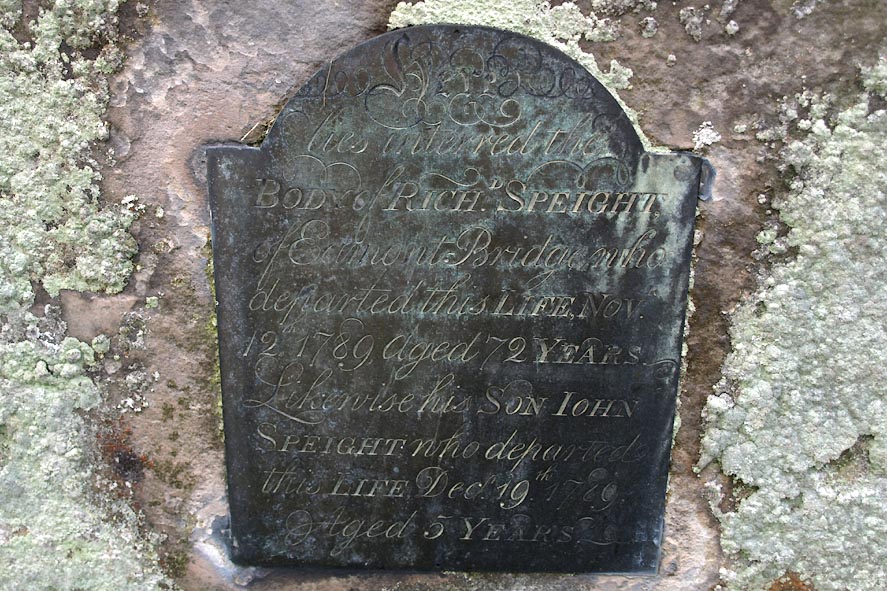 Here
lies interred the
BODY of RICH.D SPEIGHT,
of Eamont Bridge, who
departed this LIFE, Nov.r
12, 1789, aged 72 YEARS.
Likewise his SON IOHN
SPEIGHT, who departed
this LIFE, Dec.r 19.th 1789.
Aged 5 YEARS.